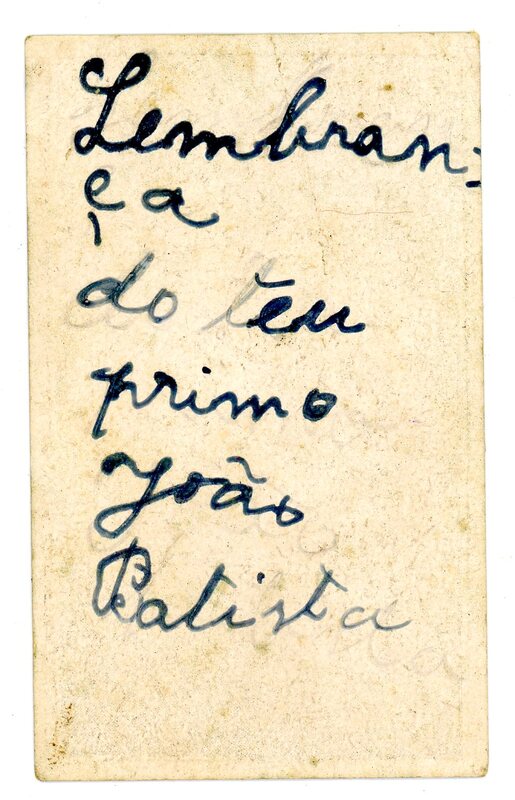 Lembran-
ça
do teu
primo
João
Batista